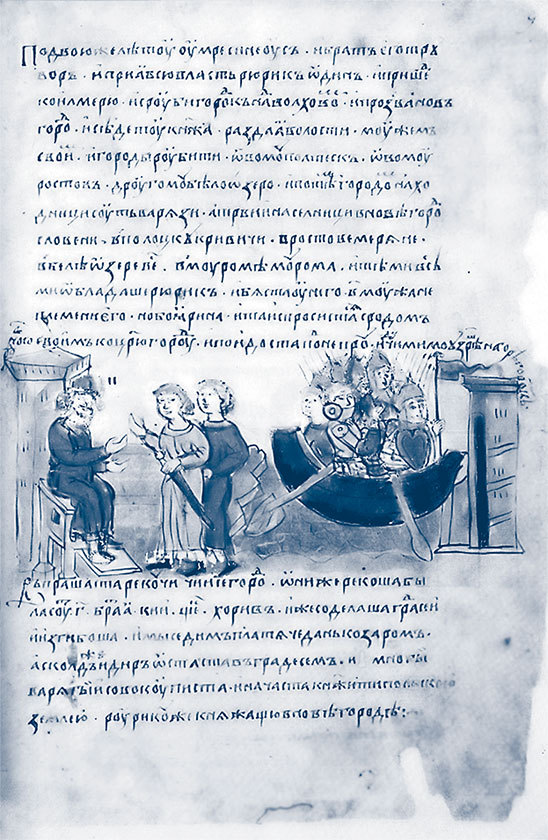 Подвоюжелѣтоу оумресинеоусъ · ибратъ его трꙋ
воръ · ипріꙗвсювласть рюрикъ ѡдинъ · ипришеⷣ
коилмерю · исроуби городокъ наволховоⷨ · ипрозвановъ
гороⷣ · исѣдетоу кнѧжа · раздаꙗ волости · моужемъ
своиⷨ · игороды роубити · ѡвомоу полтескъ · ѡвомоу
ростовъ · дроугомоу бѣлоѡзеро · ипотѣⷨ городоⷨ нахо
дници соуть варѧзи · апрьвии населници вновѣгороⷣ
словени · вполоцкъ кривичи · вростове мерѧне ·
вбелеѡзере веⷭ · вмоуромѣ моурома · итѣми всѣ
ми ѡбладаше рюрикъ · ибѧста оу него · в моужа не
племени его · нобоꙗрина · итаиспросистасѧ сродомъ
своимъ ко црюгороⷣу · ипоидоста подне проⷭ · идꙋчи мимо оузрѣ на гор
городокъ
Въпрашаста рекочи чии се гороⷣ · ѡниже рекоша бы
ла соуⷮ · г҃ · браⷮꙗ · кии · щеⷦ · хоривъ · иже соделаша граⷣ сеи
иизгибоша · имы седимъ платѧче дань козаромъ ·
асколдъже идиръ ѡстаста въ граде семъ · и многы
варѧгы совокоуписта · иначаста кнѧжити польскою
землею · роурикоуже кнѧжащю вновѣгородѣ :·